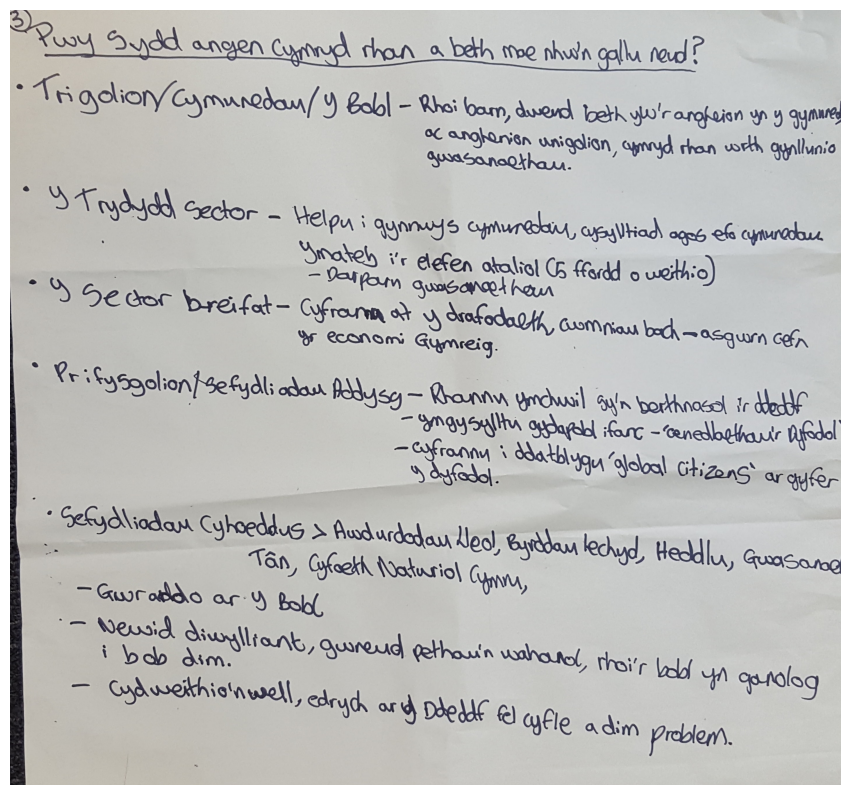 3)
Pwy sydd angen cymryd rhan a beth mae nhw'n gallu neud?
• Trigolion/Cymunedau/Y Bobl - Rhoi barn, dweud beth yw'r angheion yn y gymuned
ac anghenion unigolion, cymryd rhan wrth gynllunio
gwasanaethau.
• Y Trydydd Sector - Helpu i gynnwys cymunedau, cysylltiad agos efo cymunedau
Ymateb i'r elefen ataliol (5 ffordd o weithio)
- Darparu gwasanaethau
• Y Sector breifat - Cyfrannu at y drafodaeth, cwmniau bach - asgwrn cefn
yr economi Gymreig.
• Prifysgolion/Sefydliadau Addysg - Rhannu ymchwil sy'n berthnasol i'r ddeddf
- ymgysylltu gyda pobl ifanc - 'cenedlaethau'r Dyfodol'
- cyfrannu i ddatblygu 'global citizens' ar gyfer
y dyfodol.
• Sefydliadau Cyhoeddus > Awdurdodau Lleol, Byrddau Iechyd, Heddlu, Gwasanae
Tân, Cyfoeth Naturiol Cymru,
- Gwrando ar y Bobl
- Newid diwylliant, gwneud pethau'n wahanol, rhoi'r bobl yn ganolog
i bob dim.
- Cydweithio'n well, edrych ar y Ddeddf fel cyfle a dim problem.